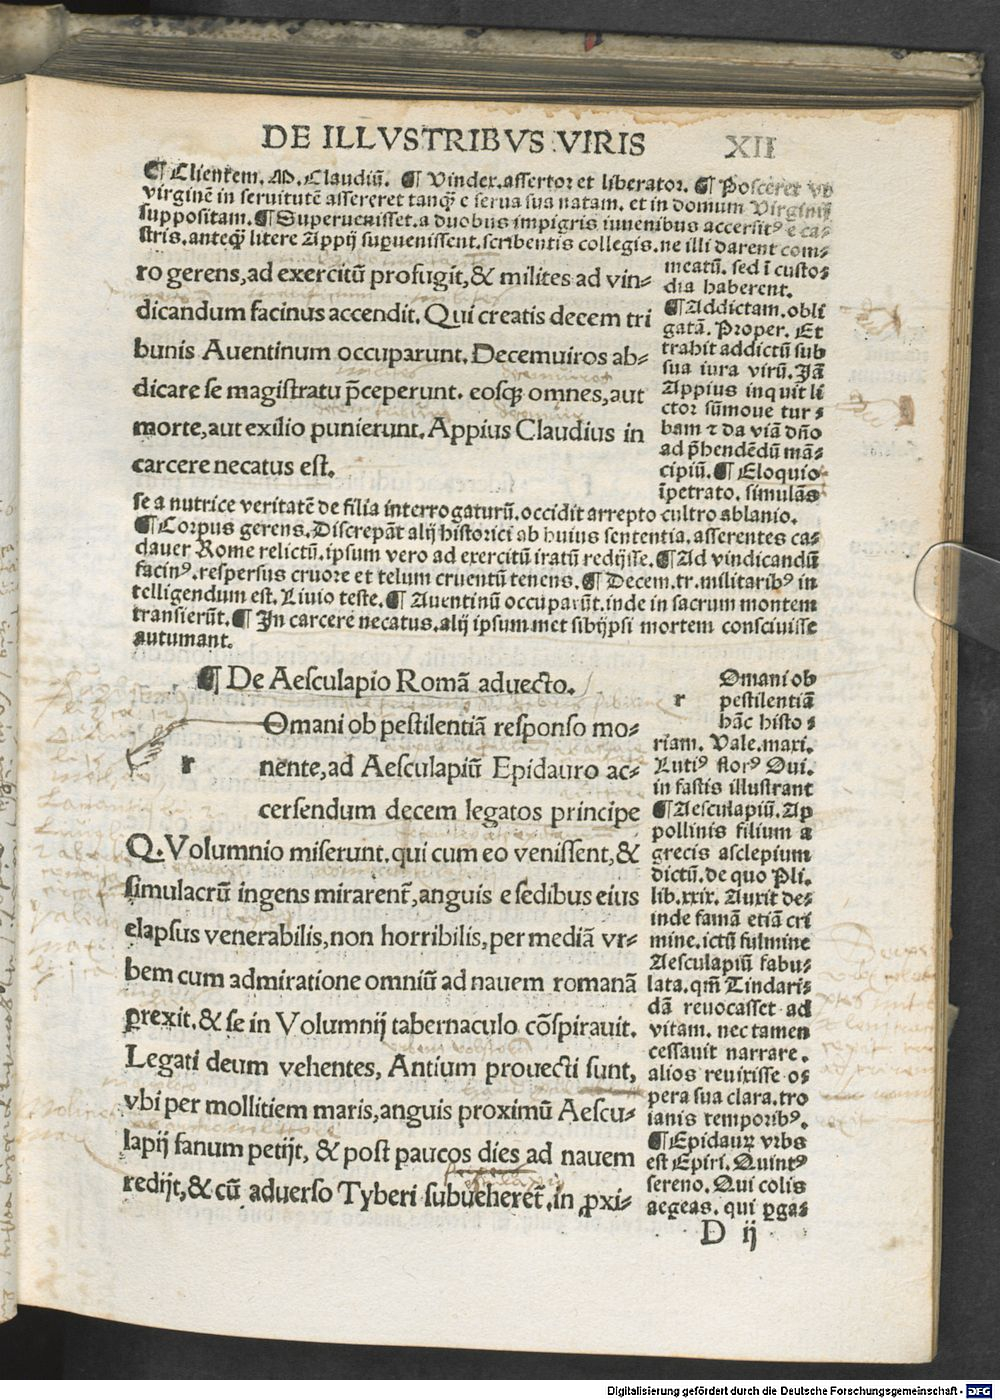 DE ILLVSTRIBVS VIRIS XII
¶ Clientem. M. Claudiū. ¶ Vindex. assertor et liberator. ¶ Posceret vt
virginē in seruitutē assereret tanq̄ e serua sua natam. et in domum Virginij
suppositam. ¶ Superuenisset. a duobus impigris iuuenibus accersitꝰ e ca-
stris. anteq̄ litere Appij suꝑuenissent. scribentis collegis. ne illi darent com-
meatū. sed ī custo-
dia haberent.
¶ Addictam. obli
gatā. Proper. Et
trahit addictū sub
sua iura virū. Jā
Appius inquit li
ctor sūmoue tur-
bam ⁊ da viā dño
ad p̄hendēdū mā-
cipiū. ¶ Eloquio
īpetrato. simulās
ro gerens, ad exercitū profugit, & milites ad vin-
dicandum facinus accendit. Qui creatis decem tri
bunis Auentinum occuparunt. Decemuiros ab-
dicare se magistratu p̄ceperunt. eosq; omnes, aut
morte, aut exilio punierunt. Appius Claudius in
carcere necatus est.
se a nutrice veritatē de filia interrogaturū. occidit arrepto cultro ablanio.
¶ Corpus gerens. Discrepāt alij historici ab huius sententia. asserentes ca-
dauer Rome relictū. ipsum vero ad exercitū iratū redijsse. ¶ Ad vindicandū
facinꝰ. respersus cruore et telum cruentū tenens. ¶ Decem. tr. militaribꝰ in
telligendum est. Liuio teste. ¶ Auentinū occuparūt. inde in sacrum montem
transierūt. ¶ In carcere necatus. alij ipsummet sibijpsi mortem consciuisse
autumant.
¶ De Aesculapio Romā aduecto.
r Omani ob pestilentiā responso mo-
nente, ad Aesculapiū Epidauro ac-
cersendum decem legatos principe
Q. Volumnio miserunt. qui cum eo venissent, &
simulacrū ingens mirarent̄, anguis e sedibus eius
elapsus venerabilis, non horribilis, per mediā vr-
bem cum admiratione omniū ad nauem romanā
ꝑrexit. & se in Volumnij tabernaculo cōspirauit.
Legati deum vehentes, Antium prouecti sunt,
vbi per mollitiem maris, anguis proximū Aescu-
lapij fanum petijt, & post paucos dies ad nauem
redijt, & cū aduerso Tyberi subueheret̄. in ꝓxi-
r Omani ob
pestilentiā
hāc histo-
riam. Vale. maxi.
Lutiꝰ florꝰ Oui.
in fastis illustrant
¶ Aesculapiū. Ap
pollinis filium a
grecis asclepium
dictū. de quo Pli.
lib. xxix. Auxit de-
inde famā etiā cri
mine. ictū fulmine
Aesculapiū fabu-
lata. qm̄ Tindari-
dā reuocasset ad
vitam. nec tamen
cessauit narrare.
alios reuixisse o-
pera sua clara. tro
ianis temporibꝰ.
¶ Epidaurꝰ vrbs
est Epiri. Quintꝰ
sereno. Qui colis
aegeas. qui ꝑga-
D ij
Digitalisierung gefördert durch die Deutsche Forschungsgemeinschaft - DFG